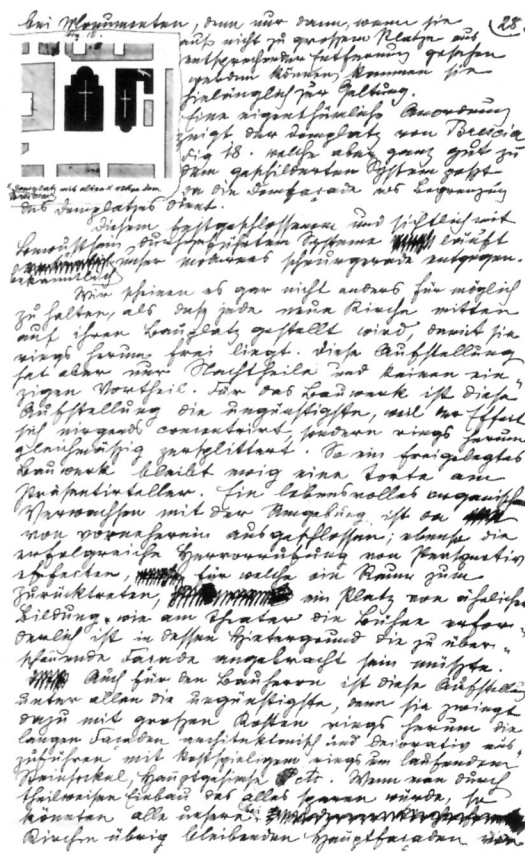 bei Monumenten, denn nur dann, wenn sie
28
Fig 18.
auf nicht zu grossem Platze aus
entsprechender Entfernung gesehen
werden können, kommen sie
hielänglich zur Geltung.
Eine eigenthümliche Anordnung
zeigt der Domplatz von Brescia
Fig 18. welche aber ganz gut zu
dem geschilderten System passt
da die Domfaçade als Begrenzung
Domplatz mit altem u.
des Domplatzes dient.
Diesem festgeschlossenen und sichtlich mit
Bewusstsein durchgeführtem Systeme läuft
unser modernes schnurgerade entgegen.
Wir scheinen es gar nicht anders für möglich
zu halten, als dass jede neue Kirche mitten
auf ihren Bauplatz gestellt wird, damit sie
rings herum frei liegt. Diese Aufstellung
hat aber nur Nachtheile und keinen ein
zigen Vortheil. Für das Bauwerk ist diese
Aufstellung die ungünstigste, weil der Effect
sich nirgends concentrirt, sondern rings herum
gleichmässig zersplittert. So ein freigelegtes
Bauwerk bleibt ewig eine Torte am
Präsentirteller. Ein lebensvolles organisches
Verwachsen mit der Umgebung ist da
von vorneherein ausgeschlossen; ebenso die
erfolgreiche Hervorrufung von Perspectiv
effecten, für welche ein Raum zum
Zurücktreten, ein Platz von ähnlicher
Bildung, wie am Theater die Bühne erfor„
derlich ist in dessen Hintergrund die zu über„
schauende Façade angebracht sein müsste.
Auch für den Bauherrn ist diese Aufstellung
unter allen die ungünstigste, denn sie zwingt
dazu mit grossen Kosten rings herum die
langen Façaden architektonisch und decorativ aus„
zuführen mit kostspieligem rings um laufendem
Steinsockel, Hauptgesimse etc. Wenn man durch
theilweisen Einbau das alles sparen würde, so
könnten alle unsere
Kirchen übrig bleibenden Hauptfaçaden von